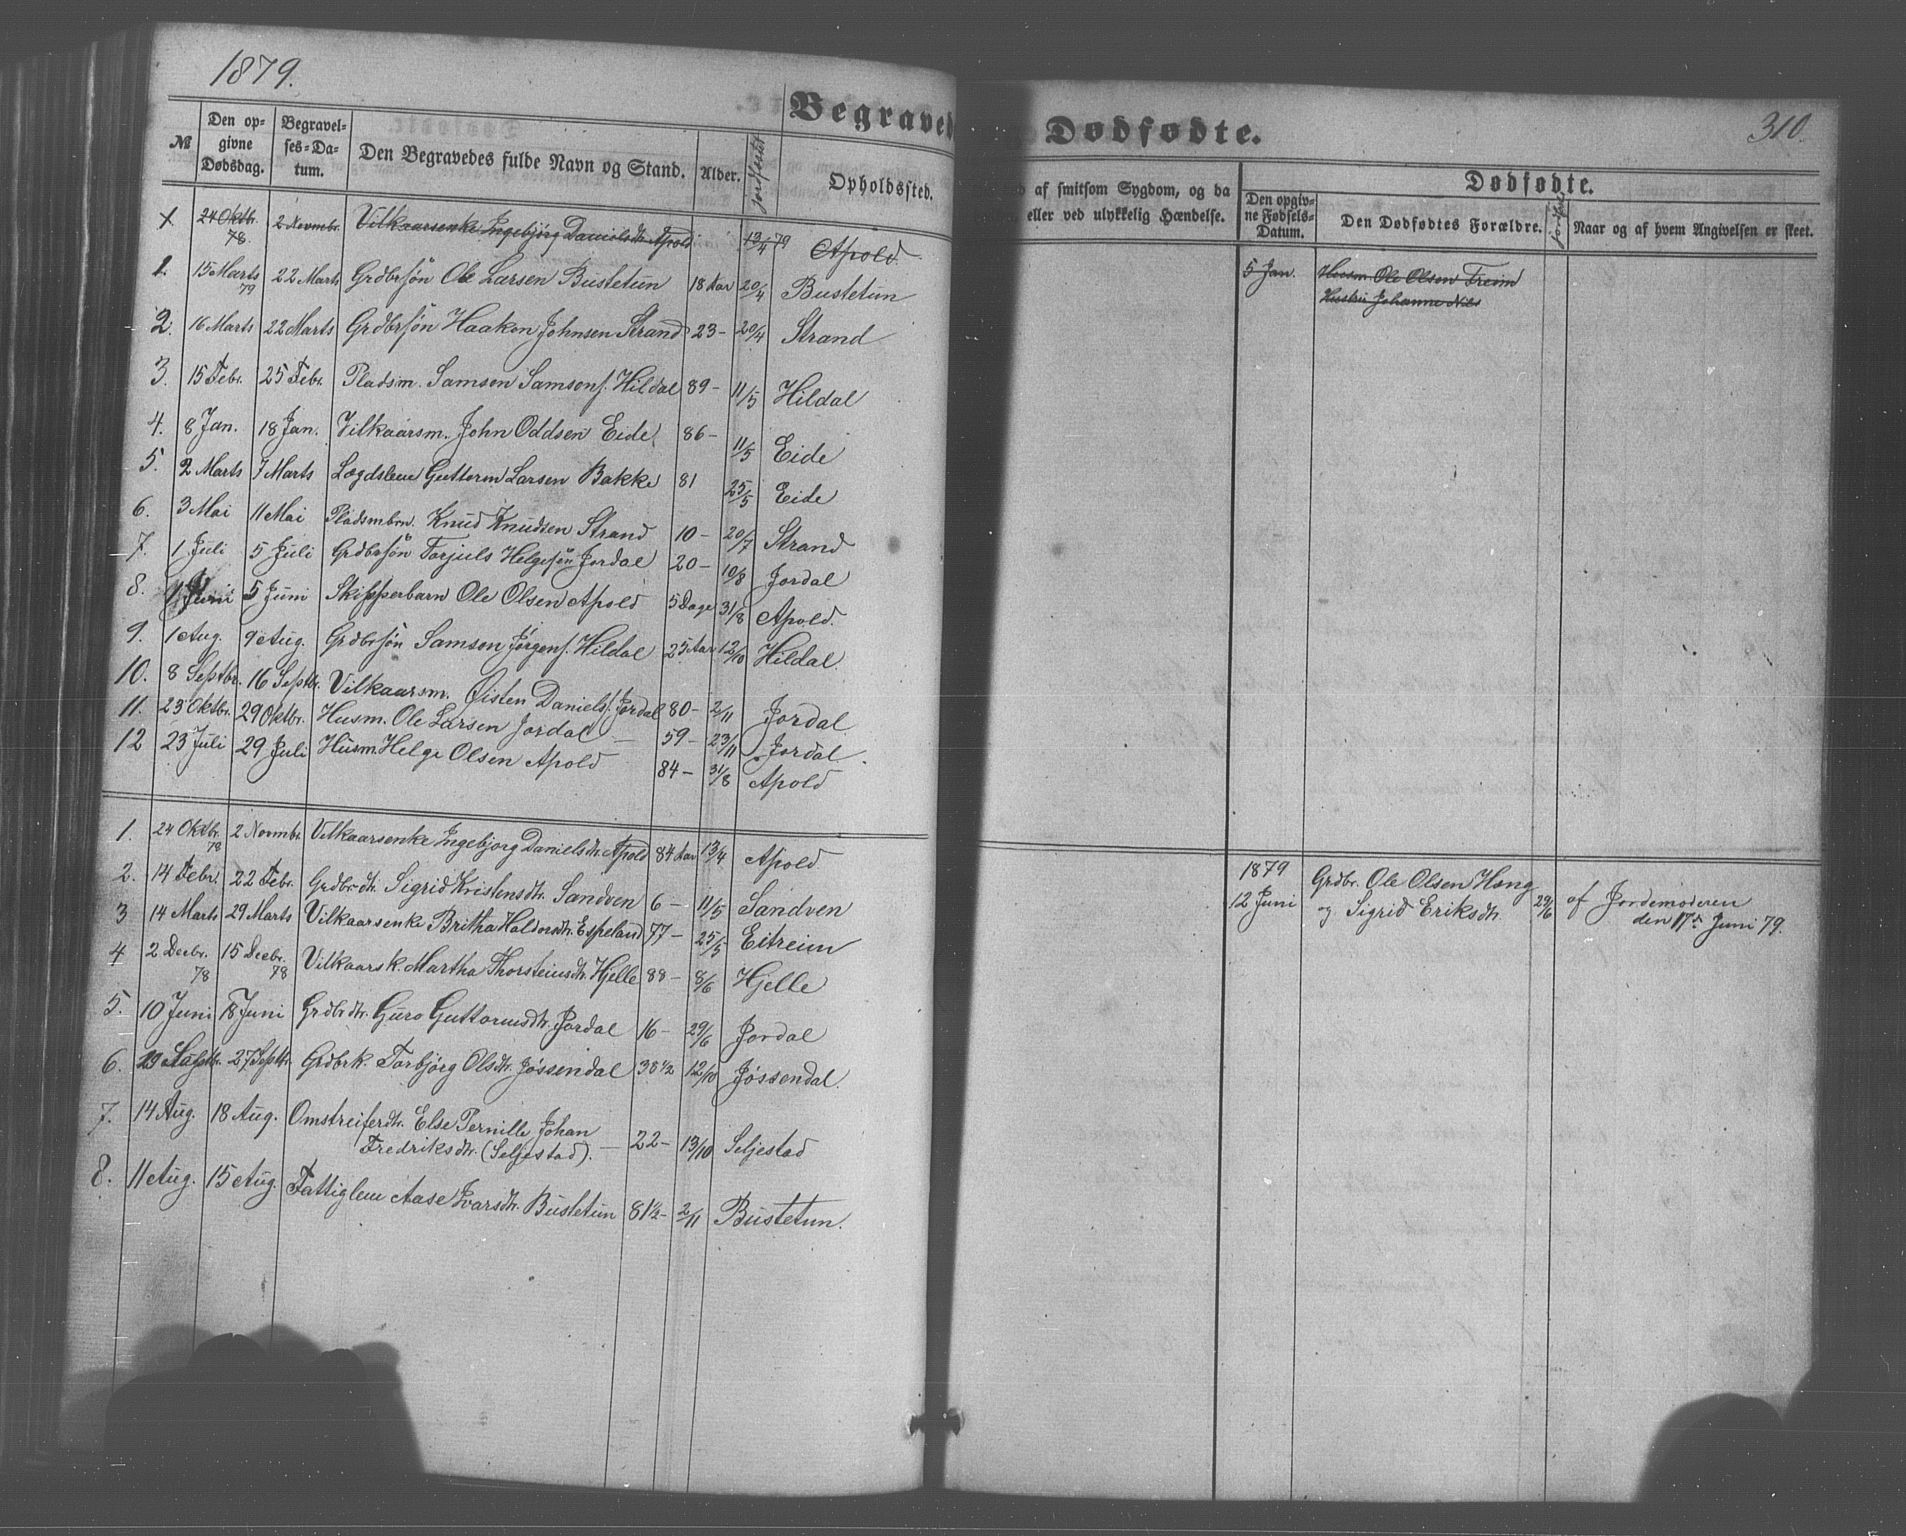 1879.
Begraved
№ Den opgivne Dødsdag. Begravelses-Datum. Den Begravedes fulde Navn og Stand. Alder. Jordfæstet Opholdssted.
1. 24 Oktbr. 78. 2 Novmbr. Vilkaarsenke Ingebjörg Danielsdtr. Apold 13/4 79 Apold.
1. 15 Marts 79 22 Marts Grdbrsön Ole Larsen Bustetun 18 Aar 20/4 Bustetun
2. 16 Marts 22 Marts Grdbrsön Haaken Johnsen Strand 23 – 20/4 Strand
3. 15 Febr. 25 Febr. Pladsm. Samson Samsons. Hildal 89 – 11/5 Hildal
4. 8 Jan. 18 Jan. Vilkaarsm. John Oddsen Eide 86 – 11/5 Eide
5. 2 Marts 7 Marts Lægdslem Guttorm Larsen Bakke 81 25/5 Eide
6. 3 Mai 11 Mai Pladsmbrn. Knud Knudsen Strand 10 – 20/7 Strand
7. 1 Juli 5 Juli Grdbrsön Torjuls Helgesön Jordal 20 – 10/8 Jordal
8. 1 Juni 5 Juni Skipperbarn Ole Olsen Apold 5 Dage 31/8 Apold.
9. 1 Aug. 9 Aug. Grdbrsön Samson Jørgens. Hildal 25 Aar 12/10 Hildal.
10. 8 Septbr. 16 Septbr. Vilkaarsm. Øisten Daniels. Jordal 80 – 2/11 Jordal
11. 23 Oktbr. 29 Oktbr. Husm. Ole Larsen Jordal – 59 – 23/11 Jordal.
12 23 Juli 29 Juli Husm. Helge Olsen Apold 84 – 31/8 Apold
1. 24 Oktbr. 78 2 Novmbr. Vilkaarsenke Ingebjorg Danielsdtr. Apold 84 Aar 13/4 Apold
2. 14 Febr. 22 Febr. Grdbrdtr. Sigrid Kristensdtr. Sandven 6 – 11/5 Sandven
3 14 Marts 29 Marts Vilkaarsenke Britha Haldorsdtr. Espeland 77 – 25/5 Eitreim
4 2 Decbr. 78 15 Decbr. 78 Vilkaarsk. Martha Thorsteinsdtr. Hjelle 88 – 8/6 Hjelle
5. 10 Juni 18 Juni Grdbrdtr. Guro Guttormsdtr. Jordal 16 – 29/6 Jordal
6. 27 Septbr. Grdbrk. Torbjörg Olsdtr. Jøssendal 38 1/2 12/10 Jøssendal.
7. 14 Aug. 18 Aug. Omstreiferdtr. Else Pernille Johan
Fredriksdtr. (Seljestad). – 22 – 13/10 Seljestad
8. 11 Aug. 15 Aug. Fattiglem Aase Ivarsdtr. Bustetun 81 1/2 – 2/11 Bustetun.
Dødfødte.
310.
af smitsom Sygdom, og da
eller ved ulykkelig Hændelse.
Dødfødte.
Den opgivne Fødsels-Datum. Den Dødfødtes Forældre. Naar og af hvem Angivelsen er skeet.
5 Jan. Husm. Ole Olsen Freim
Hustru Johanne Nils
1879
12 Juni Grdbr. Ole Olsen Haug
og Sigrid Eriksdtr. 29/6 af Jordemoderen
den 17de Juni 79.